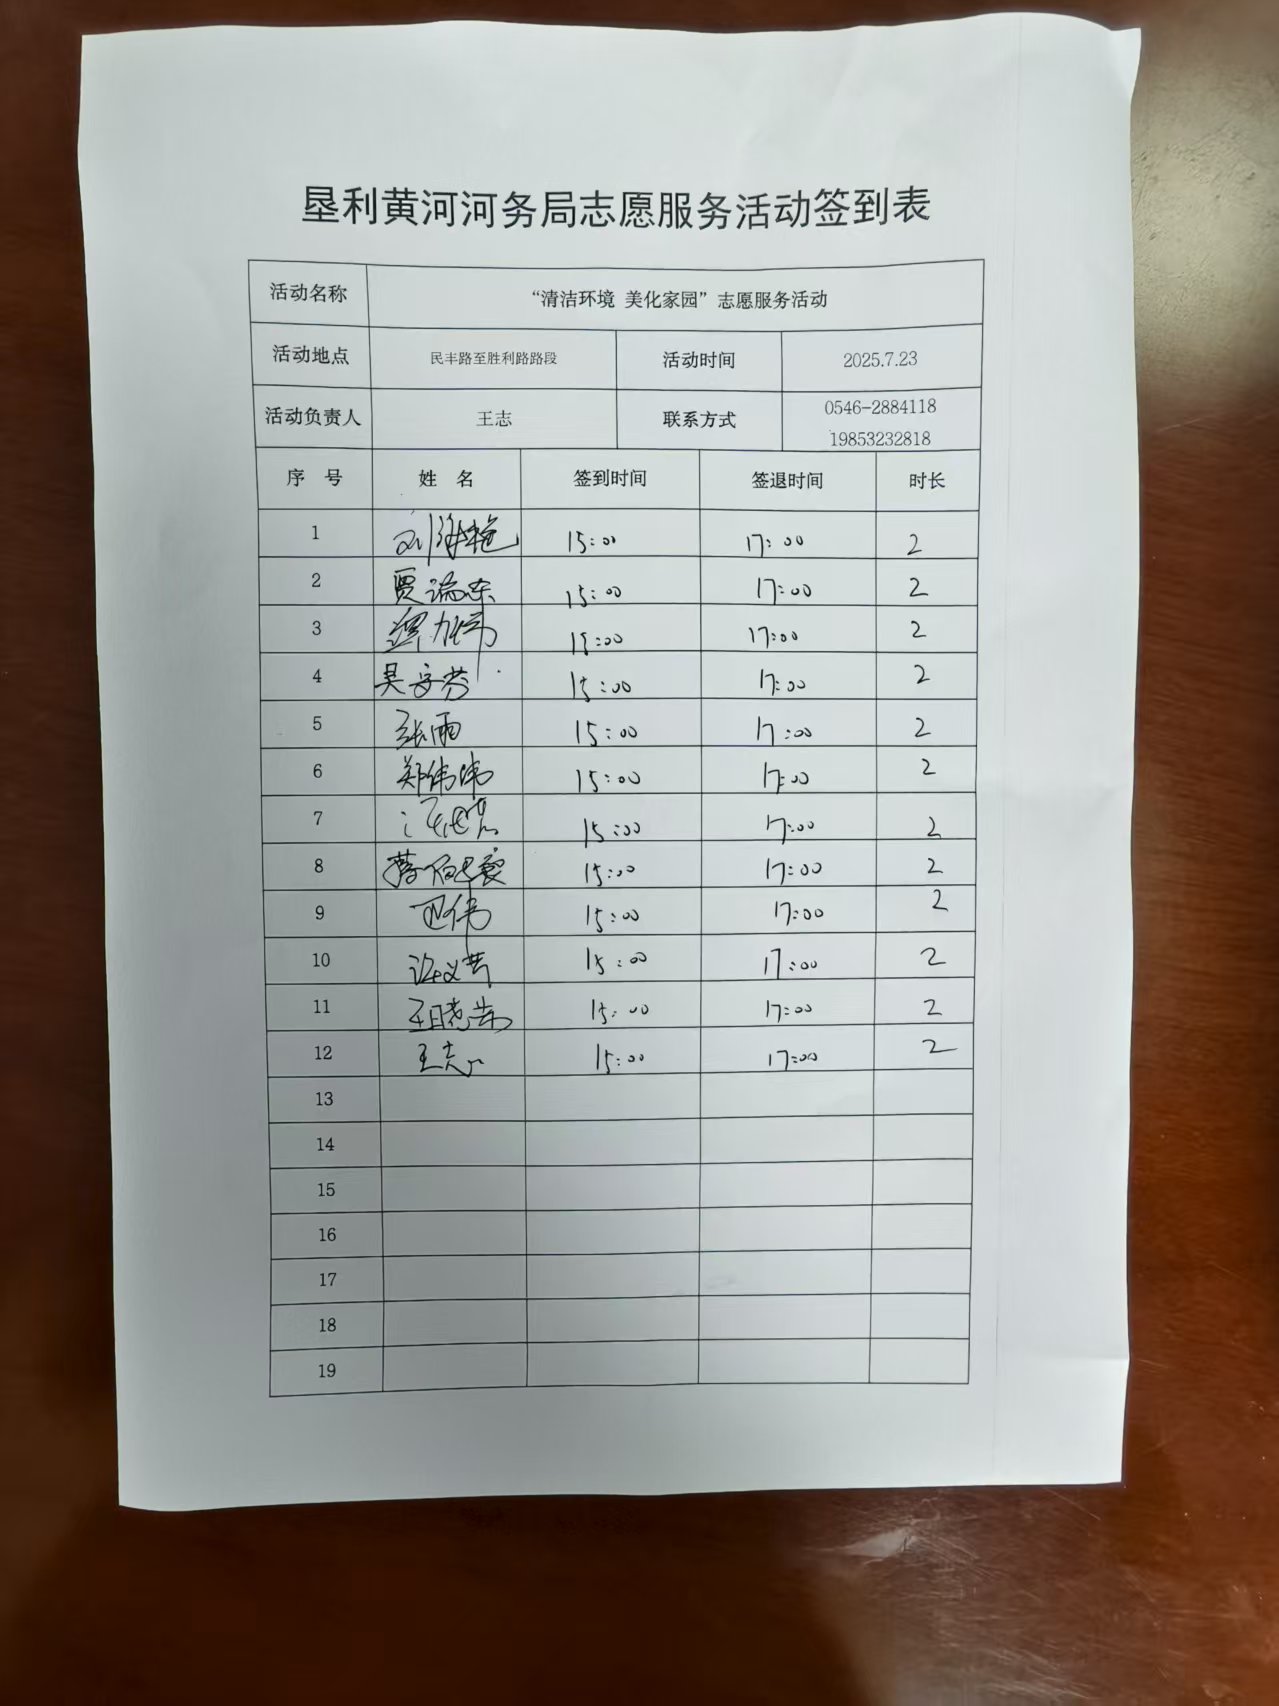 垦利黄河河务局志愿服务活动签到表
活动名称 “清洁环境 美化家园”志愿服务活动
活动地点 民丰路至胜利路路段 活动时间 2025.7.23
活动负责人 王志 联系方式 0546-2884118
19853232818
序 号 姓 名 签到时间 签退时间 时长
1 刘海艳 15:00 17:00 2
2 贾瑞东 15:00 17:00 2
3 15:00 17:00 2
4 吴安芬 15:00 17:00 2
5 张雨 15:00 17:00 2
6 郑伟伟 15:00 17:00 2
7 15:00 17:00 2
8 15:00 17:00 2
9 15:00 17:00 2
10 15:00 17:00 2
11 王晓燕 15:00 17:00 2
12 王志 15:00 17:00 2
13
14
15
16
17
18
19